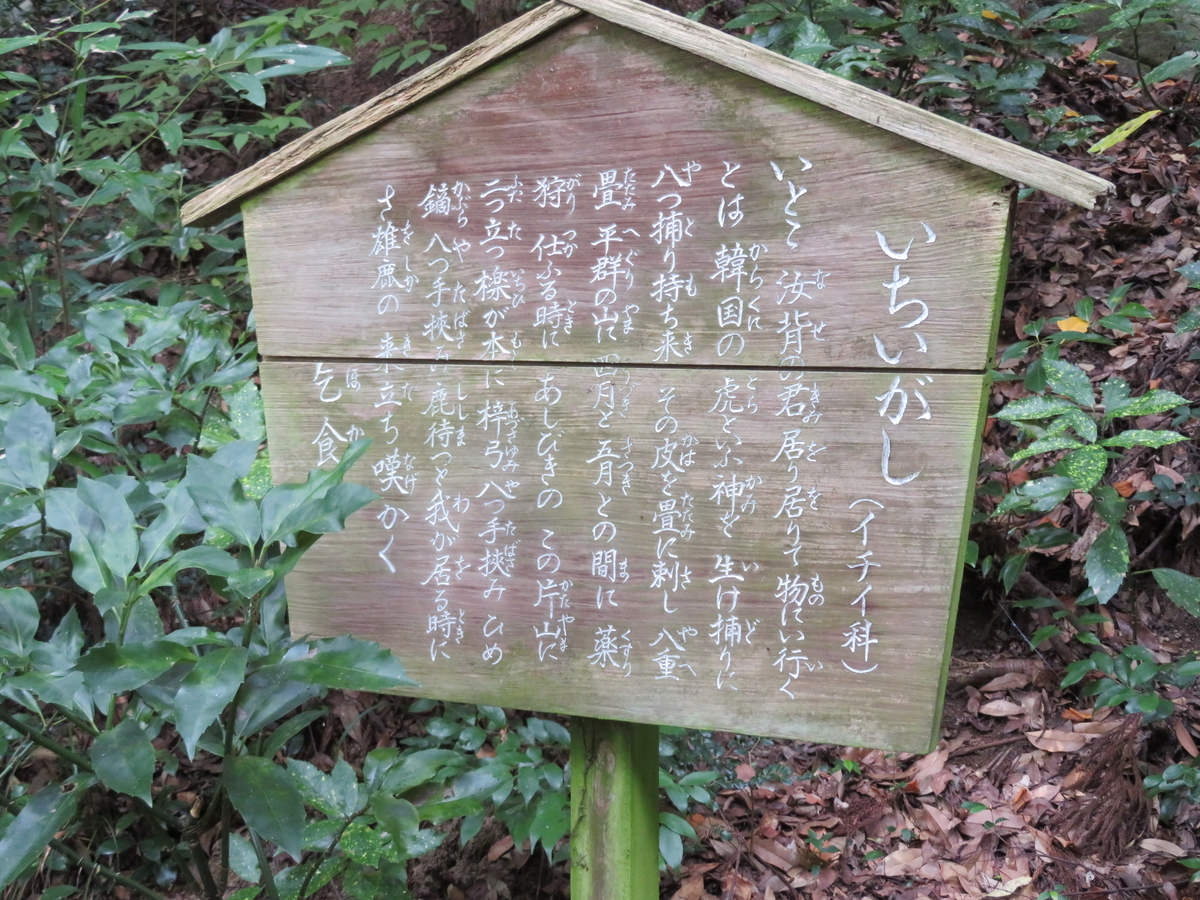 いちいがし
（イチイ科）
いとこ 汝背の君 居り居りて 物にい行く
とは 韓国の 虎といふ神を 生け捕りに
八つ捕り持ち来 その皮を畳に刺し 八重
畳 平群の山に 四月と 五月との間に 薬
狩 仕ふる時に あしびきの この片山に
二つ立つ 櫟が本に 梓弓 八つ手挟み ひめ
鏑 八つ手挟み 鹿待つと 我が居る時に
さ雄鹿の 来立ち嘆かく
乞食